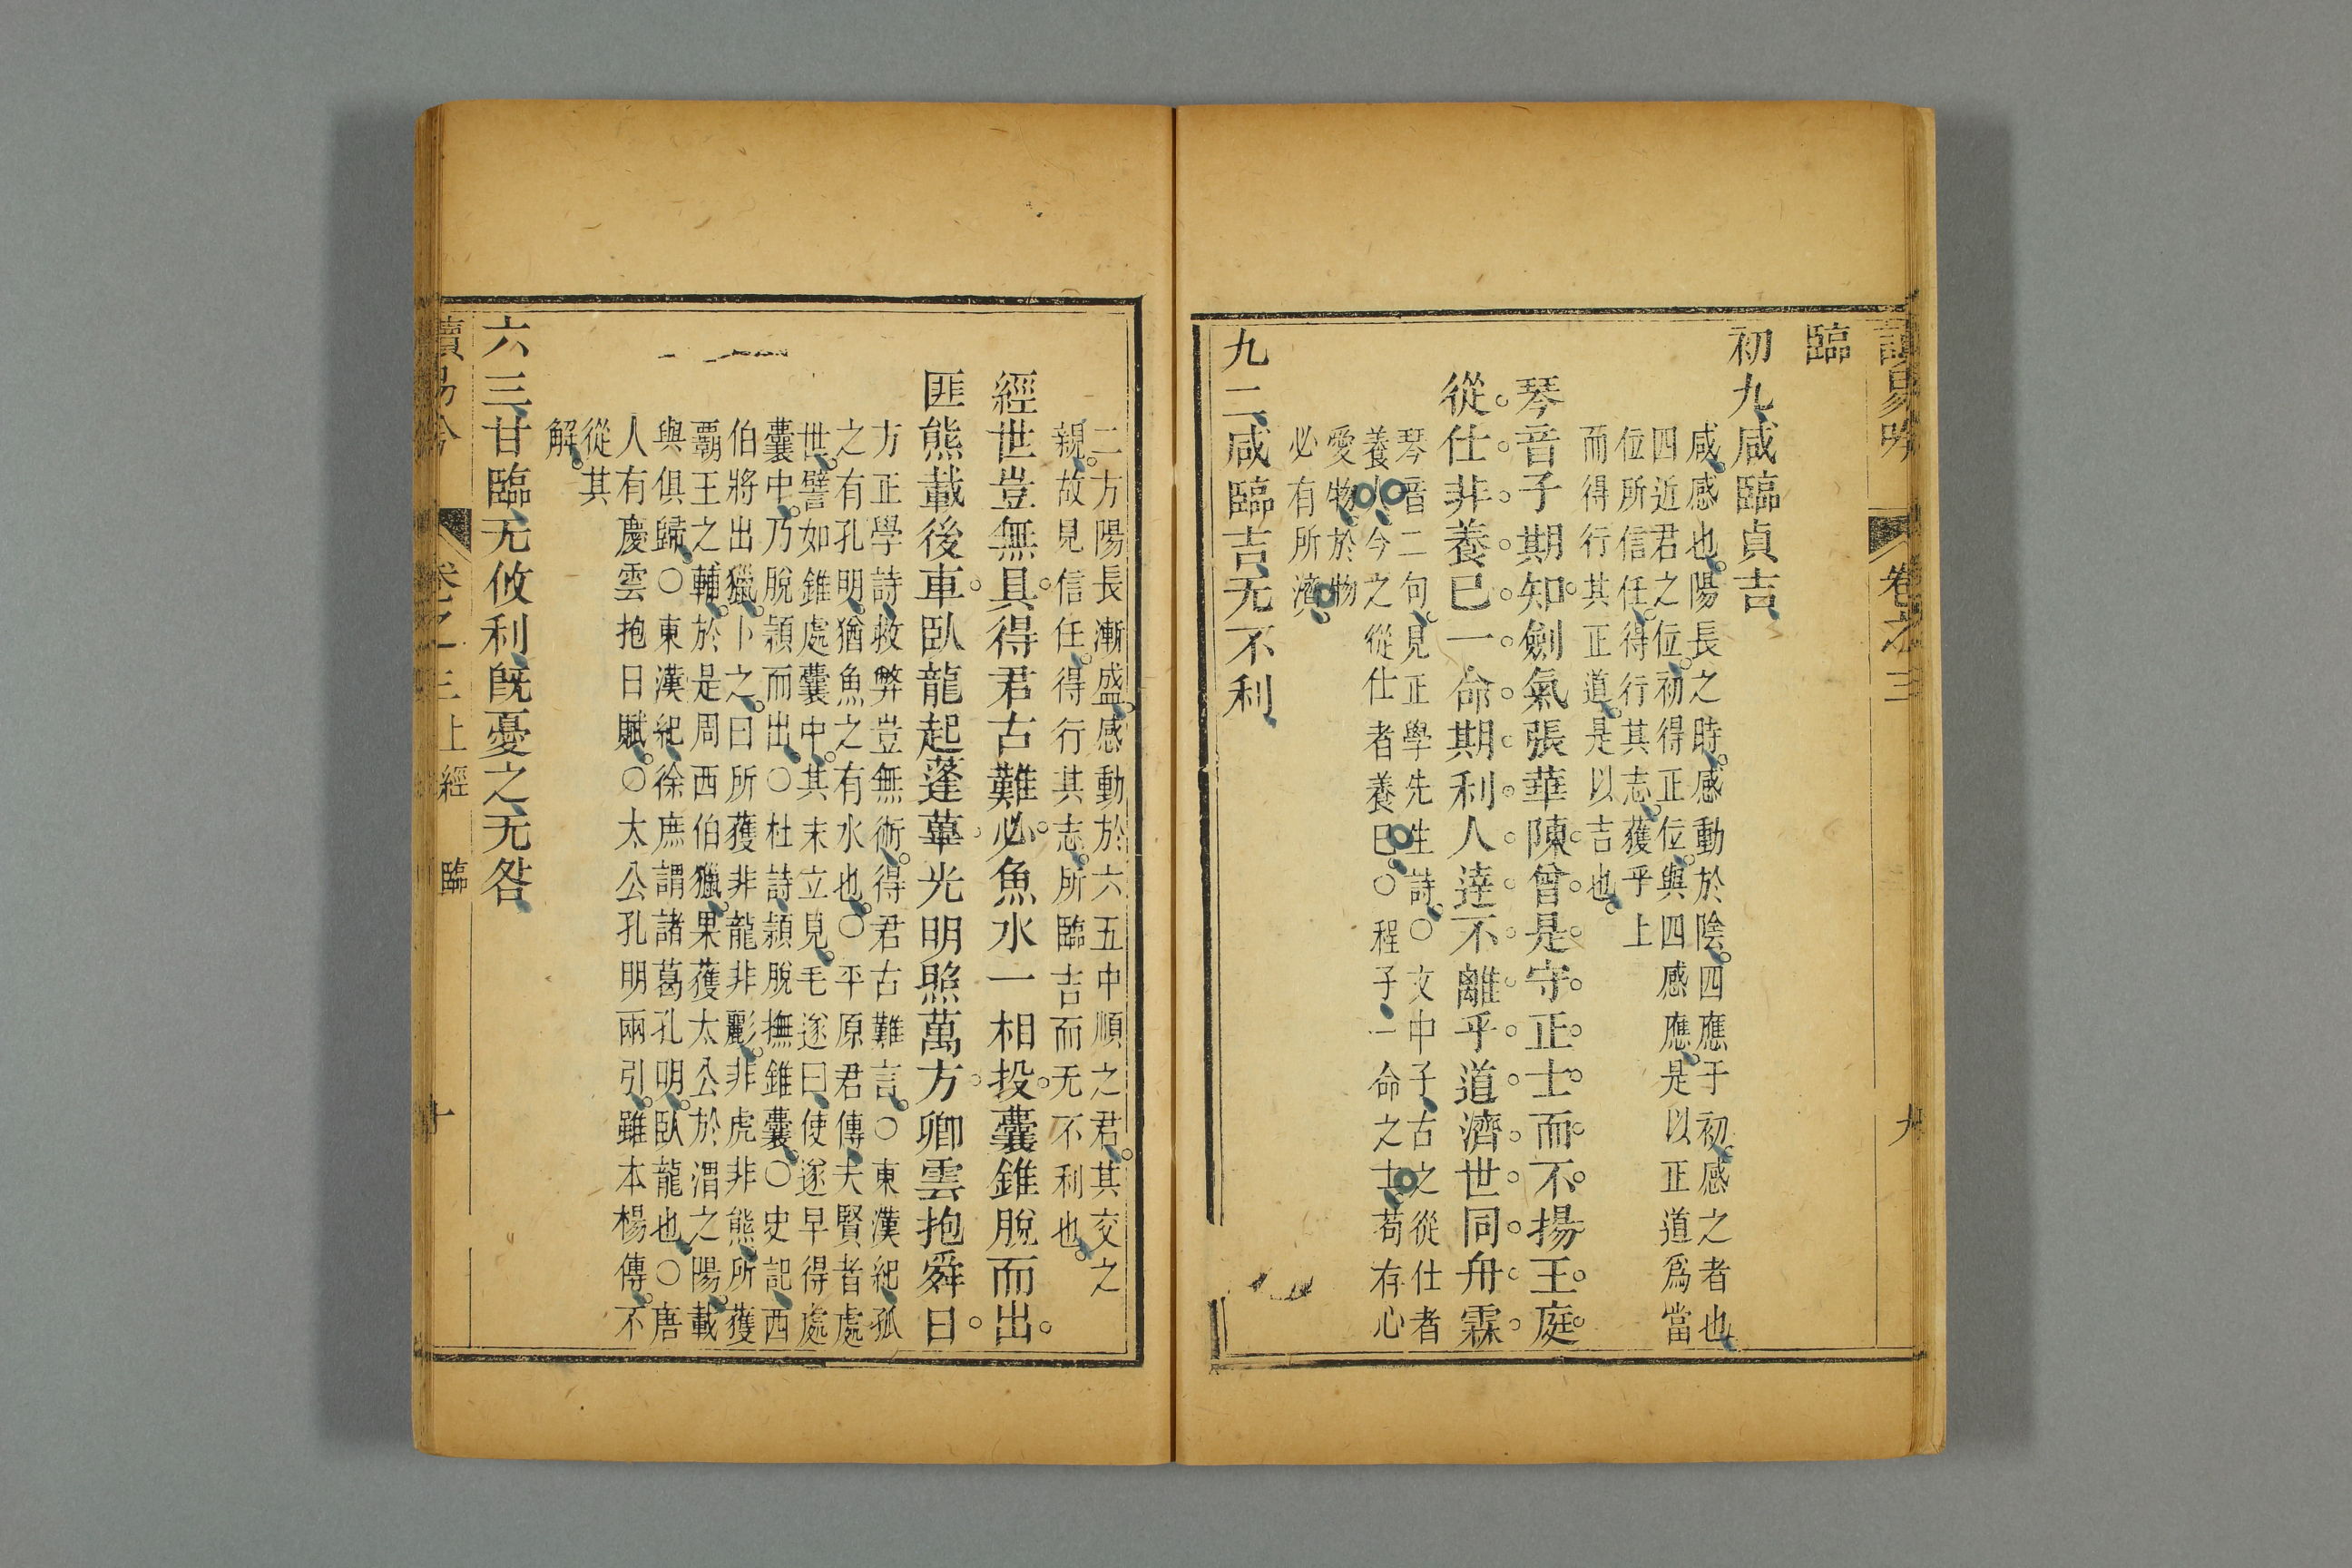 讀易吟
卷之三
九
臨
初九咸臨貞吉
咸感也陽長之時感動於陰四應于初感之者也
四近君之位初得正位與四感應是以正道爲當
位所信任得行其志獲乎上
而得行其正道是以吉也
琴音子期知劍氣張華陳曾是守正士而不揚王庭
從仕非養已一命期利人達不離乎道濟世同舟霖
琴音二句見正學先生詩○文中子古之從仕者
養人今之從仕者養已○程子一命之士苟存心
愛物於物
必有所濟
九二咸臨吉无不利
二方陽長漸盛感動於六五中順之君其交之
親故見信任得行其志所臨吉而无不利也
經世豈無具得君古難必魚水一相投囊錐脫而出
匪熊載後車臥龍起蓬蓽光明照萬方卿雲抱舜日
方正學詩救弊豈無術得君古難言○東漢紀孤
之有孔明猶魚之有水也○平原君傳夫賢者處
世譬如錐處囊中其末立見毛遂曰使遂早得處
囊中乃脫穎而出○杜詩穎脫撫錐囊○史記西
伯將出獵卜之曰所獲非龍非彲非虎非熊所獲
霸王之輔於是周西伯獵果獲太公於渭之陽載
與俱歸○東漢紀徐庶謂諸葛孔明臥龍也○唐
人有慶雲抱日賦○太公孔明兩引雖本楊傳不
從其
解
六三甘臨无攸利旣憂之无咎
讀易吟
卷之三
上經
臨
十